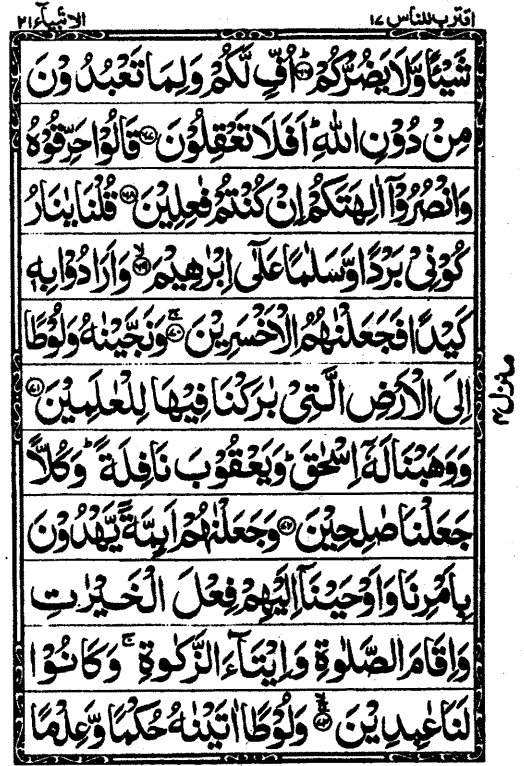 اقترب للناس ١٧ الانبیآء ٢١
شَيْـًٔا وَّلَا يَضُرُّكُمْ ؕ ۝٦٦ اُفٍّ لَّكُمْ وَلِمَا تَعْبُدُوْنَ
مِنْ دُوْنِ اللّٰهِ ؕ اَفَلَا تَعْقِلُوْنَ ۝٦٧ قَالُوْا حَرِّقُوْهُ
وَانْصُرُوْۤا اٰلِهَتَكُمْ اِنْ كُنْتُمْ فٰعِلِيْنَ ۝٦٨ قُلْنَا يٰنَارُ
كُوْنِيْ بَرْدًا وَّسَلٰمًا عَلٰۤى اِبْرٰهِيْمَ ۙ ۝٦٩ وَاَرَادُوْا بِهٖ
كَيْدًا فَجَعَلْنٰهُمُ الْاَخْسَرِيْنَ ۚ ۝٧٠ وَنَجَّيْنٰهُ وَلُوْطًا
اِلَى الْاَرْضِ الَّتِيْ بٰرَكْنَا فِيْهَا لِلْعٰلَمِيْنَ ۝٧١
وَوَهَبْنَا لَهٗۤ اِسْحٰقَ ؕ وَيَعْقُوْبَ نَافِلَةً ؕ وَكُلًّا
جَعَلْنَا صٰلِحِيْنَ ۝٧٢ وَجَعَلْنٰهُمْ اَىِٕمَّةً يَّهْدُوْنَ
بِاَمْرِنَا وَاَوْحَيْنَاۤ اِلَيْهِمْ فِعْلَ الْخَيْرٰتِ
وَاِقَامَ الصَّلٰوةِ وَاِيْتَآءَ الزَّكٰوةِ ۚ وَكَانُوْا
لَنَا عٰبِدِيْنَ ۙۚ ۝٧٣ وَلُوْطًا اٰتَيْنٰهُ حُكْمًا وَّعِلْمًا
منزل ٤